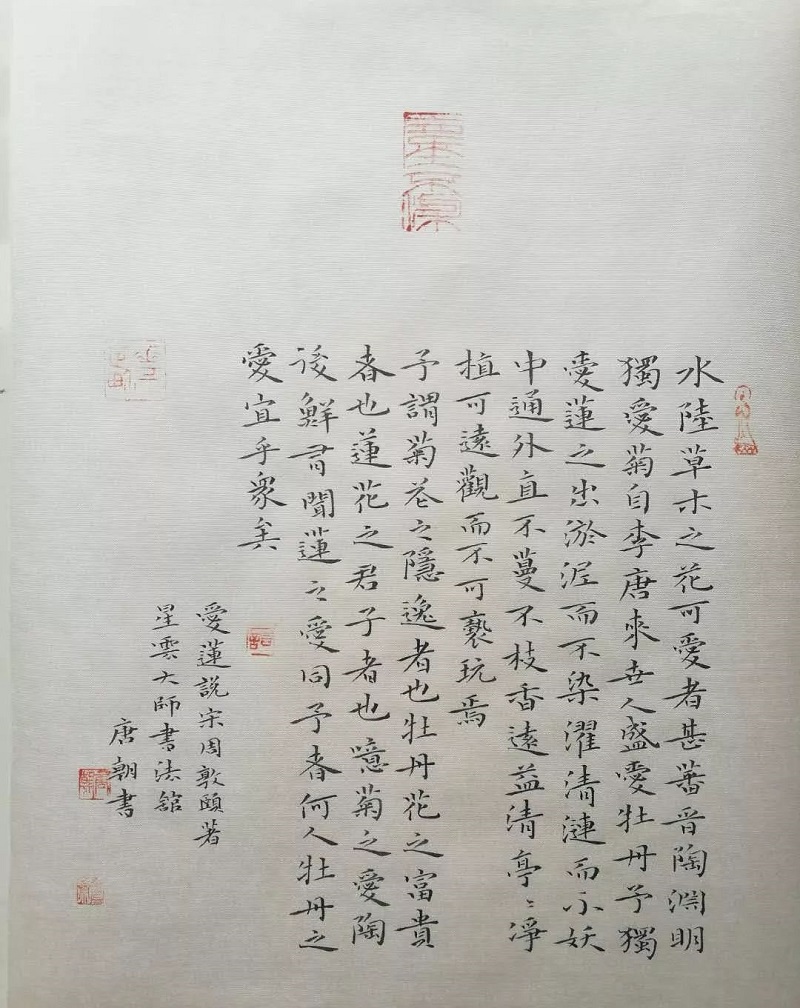 水陸草木之花可愛者甚蕃晉陶淵明
獨愛菊自李唐來世人盛愛牡丹予獨
愛蓮之出淤泥而不染濯清漣而不妖
中通外直不蔓不枝香遠益清亭〻淨
植可遠觀而不可褻玩焉
予謂菊花之隱逸者也牡丹花之富貴
者也蓮花之君子者也噫菊之愛陶
後鮮有聞蓮之愛同予者何人牡丹之
愛宜乎衆矣
愛蓮説宋周敦頤著
星雲大師書法館
唐朝書